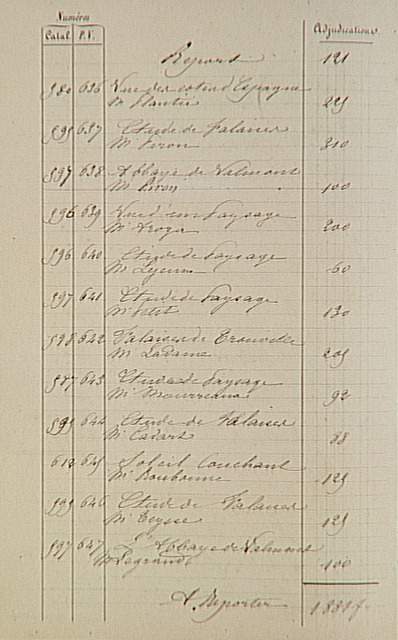 Numéros
Catal. P.V. Adjudications
Report 121
580 636 Vue des cotes d'Espagne
Mr Plantin 225
595 637 Etude de Falaises
Mr Feron 210
597 638 Abbaye de Valmont
Mr 100
596 639 Vue d'un Paysage
Mr Arosa 200
596 640 Etude de Paysage
Mr Lejeune 60
597 641 Etude de Paysage
Mr Petit 130
598 642 Falaises de Trouville
Mr Ladame 205
587 643 Etude de Paysage
Mr 92
595 644 Etude de Falaises
Mr Cadart 88
612 645 Soleil Couchant
Mr Narbonne 125
595 646 Etude de Falaises
Mr Teysse 125
597 647 L'Abbaye de Valmont
Mr Legrand 100
A Reporter 1881 f